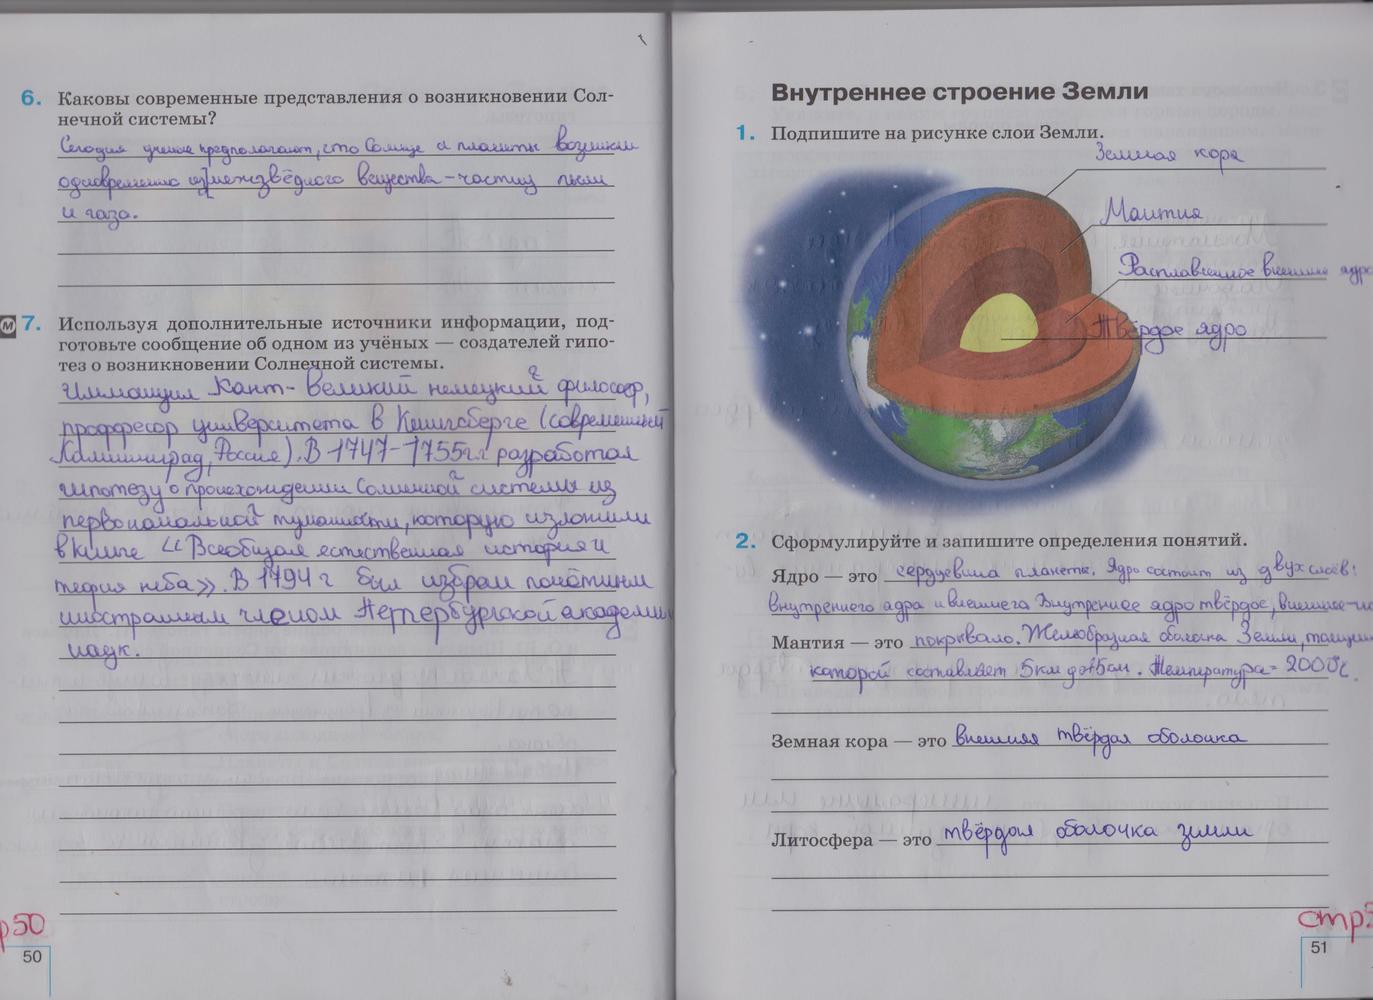 6. Каковы современные представления о возникновении Сол-
нечной системы?
Сегодня учёные предполагают, что Солнце и планеты возникли
одновременно из межзвёздного вещества - частиц пыли
и газа.
М 7. Используя дополнительные источники информации, под-
готовьте сообщение об одном из учёных — создателей гипо-
тез о возникновении Солнечной системы.
Иммануил Кант - Великий немецкий философ,
профессор университета в Кенигсберге (современный
Калининград, Россия). В 1747-1755гг разработал
гипотезу о происхождении Солнечной системы из
первоначальной туманности, которую изложили
в книге «Всеобщая естественная история и
теория неба». В 1794 г был избран почётным
иностранным членом Петербургской академии
наук.
р50
50
Внутреннее строение Земли
1. Подпишите на рисунке слои Земли.
Земная кора
Мантия
Расплавленное внешнее ядро
Твёрдое ядро
2. Сформулируйте и запишите определения понятий.
Ядро — это сердцевина планеты. Ядро состоит из двух слоёв:
внутреннего ядра и внешнего Внутреннее ядро твёрдое, внешнее-
Мантия — это покрывало. Жележ Земли,
которой составляет 5км до Температура = 2000
Земная кора — это внешняя твёрдая оболочка
Литосфера — это твёрдая оболочка земли
стр5
51